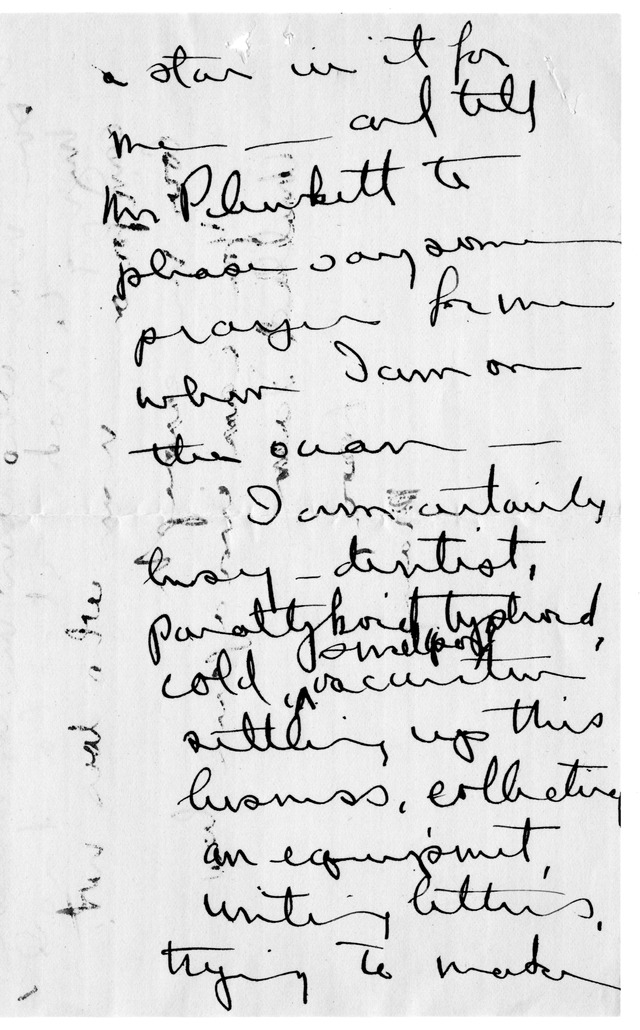 a star in it for
me — and tell
Mr Plunkett to
please say some
prayer for me
when I am on
the ocean —
I am certainly
busy – dentist,
paratyphoid, typhoid,
smallpox
cold, vaccination
settling up this
business, collecting
an equipment,
writing letters,
trying to make